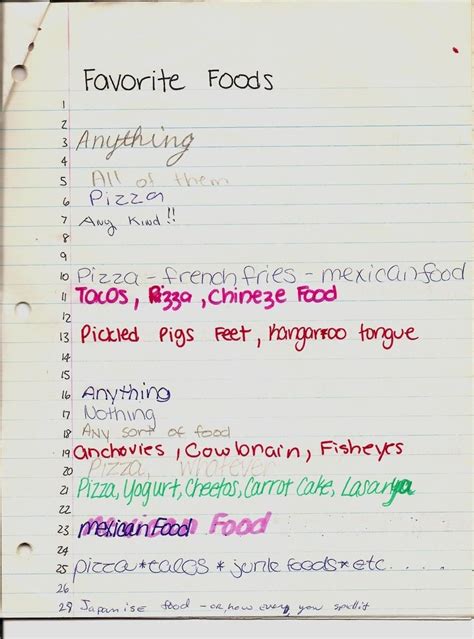 Favorite Foods
1
2
3 Anything
4
5 All of them
6 Pizza
7 Any Kind!!
8
9
10 Pizza - french fries - mexican food
11 Tacos, Pizza, Chineze Food
12
13 Pickled Pigs Feet, Kangaroo tongue
14
15
16 Anything
17 Nothing
18 Any sort of food
19 anchovies, Cowbrain, Fisheyes
20 Pizza, Whatever
21 Pizza, Yogurt, Cheetos, Carrot Cake, Lasanya
22
23 mexican Food
24
25 pizza*tacos * junk foods*etc.....
26
28 Japanise food - or, how every you spell it